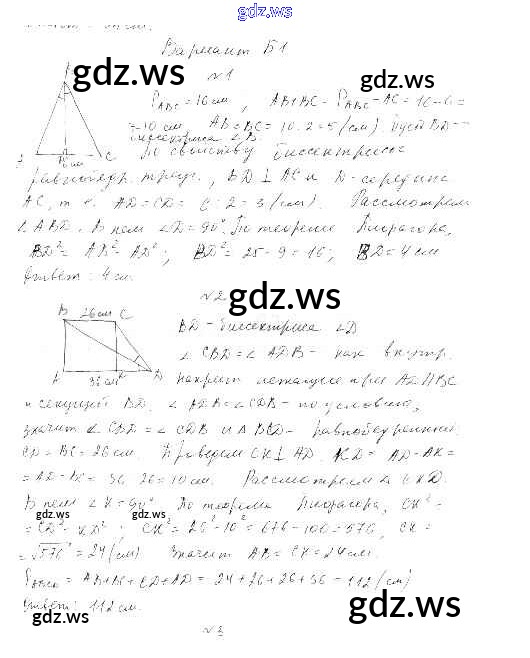 gdz.ws
Вариант Б1
gdz.ws
gdz.ws
№1
P ABC = 16 см, AB+BC = P ABC − AC = 16−6=
=10 см AB=BC= 10:2=5(см). Пусть BD −
биссектриса ∠B.
По свойству биссектрисы
B
A
C
6 см
равнобедр. треуг., BD ⊥ AC и D-середина
AC, т. е. AD=CD= 6:2=3(см). Рассмотрим
∠ABD. В нем ∠D=90°. По теореме Пифагора,
BD²= AB²− AD²; BD²= 25−9=16; BD=4 см
Ответ: 4 см.
gdz.ws
№2
B 26 см C
A 36 см K D
BD − биссектриса ∠D
∠CBD=∠ADB − как внутр.
накрест лежащие при AD||BC
и секущей BD. ∠ADB=∠CDB − по условию,
значит ∠CBD=∠CDB и △BCD − равнобедренный.
CD=BC=26 см. Проведем CK⊥AD. KD= AD−AK=
=AD−BC= 36−26=10 см. Рассмотрим △CKD.
В нем ∠K=90° По теореме Пифагора, CK²=
gdz.ws
gdz.ws
=CD²−KD²; CK²=26²−10²=676−100=576, CK=
=√576=24(см) Значит AB=CK=24 см.
P ABCD = AB+BC+CD+AD= 24+26+26+36=112(см)
Ответ: 112 см.
gdz.ws
gdz.ws
№3